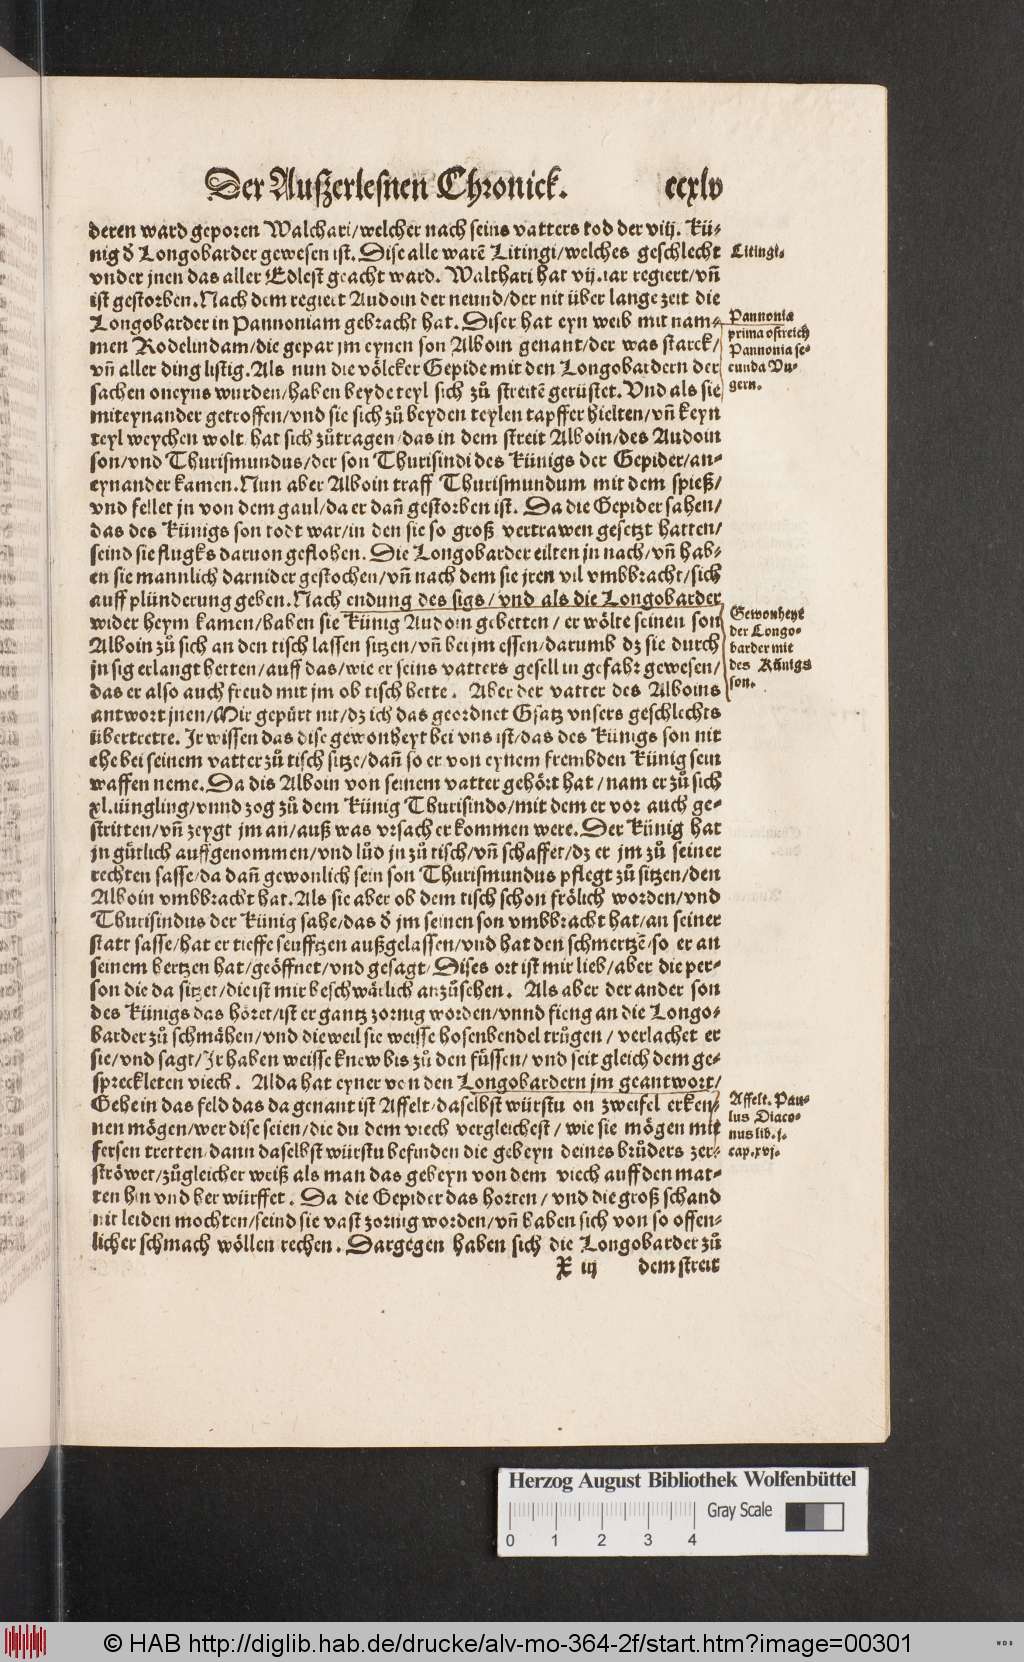 Der Außerlesnen Chronick. ccxlv
deren ward geporen Walchari/welcher nach seins vatters tod der viij. Kü-
nig d̕ Longobarder gewesen ist. Dise alle warẽ Litingi/welches geschlecht
vnder jnen das aller Edlest geacht ward. Walthari hat vij. iar regiert/vñ
ist gestorben. Nach dem regiert Audoin der neund/der nit über lange zeit die
Longobarder in Pannoniam gebracht hat. Diser hat eyn weib mit nam-
men Rodelindam/die gepar jm eynen son Alboin genant/der was starck/
vñ aller ding listig. Als nun die völcker Gepide mit den Longobardern der
sachen oneyns wurden/haben beyde teyl sich zů streitẽ gerüstet. Vnd als sie
miteynander getroffen/vnd sie sich zů beyden teylen tapffer hielten/vñ keyn
teyl weychen wolt/hat sich zůtragen/das in dem streit Alboin/des Audoin
son/vnd Thurismundus/der son Thurisindi des Künigs der Gepider/an-
eynander kamen. Nun aber Alboin traff Thurismundum mit dem spieß/
vnd fellet jn von dem gaul/da er dañ gestorben ist. Da die Gepider sahen/
das des Künigs son todt war/in den sie so groß vertrawen gesetzt hatten/
seind sie flugks daruon geflohen. Die Longobarder eilten jn nach/vñ hab-
en sie mannlich darnider gestochen/vñ nach dem sie jren vil vmbbracht/sich
auff plünderung geben. Nach endung des sigs/vnd als die Longobarder
wider heym kamen/haben sie Künig Audoin gebetten/er wölte seinen son
Alboin zů sich an den tisch lassen sitzen/vñ bei jm essen/darumb dz sie durch
jn sig erlangt hetten/auff das/wie er seins vatters gesell in gefahr gewesen/
das er also auch freud mit jm ob tisch hette. Aber der vatter des Alboins
antwort jnen/Mir gepürt nit/dz ich das geordnet Gsatz vnsers geschlechts
übertrette. Ir wissen das dise gewonheyt bei vns ist/das des Künigs son nit
ehe bei seinem vatter zů tisch sitze/dañ so er von eynem frembden Künig sein
waffen neme. Da dis Alboin von seinem vatter gehört hat/nam er zů sich
xl. jüngling/vnnd zog zů dem Künig Thurisindo/mit dem er vor auch ge-
stritten/vñ zeygt jm an/auß was vrsach er kommen were. Der Künig hat
jn gůtlich auffgenommen/vnd lůd jn zů tisch/vñ schaffet/dz er jm zů seiner
rechten sasse/da dañ gewonlich sein son Thurismundus pflegt zů sitzen/den
Alboin vmbbracht hat. Als sie aber ob dem tisch schon frölich worden/vnd
Thurisindus der Künig sahe/das d̕ jm seinen son vmbbracht hat/an seiner
statt sasse/hat er tieffe seufftzen außgelassen/vnd hat den schmertzẽ/so er an
seinem hertzen hat/geöffnet/vnd gesagt/Dises ort ist mir lieb/aber die per-
son die da sitzet/die ist mir beschwärlich anzůsehen. Als aber der ander son
des Künigs das höret/ist er gantz zornig worden/vnnd fieng an die Longo-
barder zů schmähen/vnd dieweil sie weisse hosenbendel trůgen/verlachet er
sie/vnd sagt/Ir haben weisse knew bis zů den füssen/vnd seit gleich dem ge-
spreckleten viech. Alda hat eyner von den Longobardern jm geantwort/
Gehe in das feld das da genant ist Affelt/daselbst würstu on zweifel erken-
nen mögen/wer dise seien/die du dem viech vergleichest/wie sie mögen mit
fersen tretten/dann daselbst würstu befinden die gebeyn deines brůders zer-
ströwet/zůgleicher weiß als man das gebeyn von dem viech auff den mat-
ten hin vnd her würffet. Da die Gepider das horten/vnd die groß schand
nit leiden mochten/seind sie vast zornig worden/vñ haben sich von so offen-
licher schmach wöllen rechen. Dargegen haben sich die Longobarder zů
X iij dem streit
Litingi.
Pannonia
prima ostreich
Pannonia se-
cunda Vn-
gern.
Gewonheyt
der Longo-
barder mit
des Künigs
son.
Affelt. Pau-
lus Diaco-
nus lib. j.
cap. xvj.
Herzog August Bibliothek Wolfenbüttel
Gray Scale
0 1 2 3 4
© HAB http://diglib.hab.de/drucke/alv-mo-364-2f/start.htm?image=00301